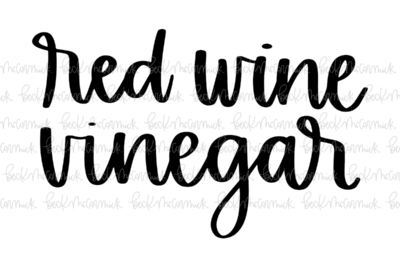 red wine
vinegar